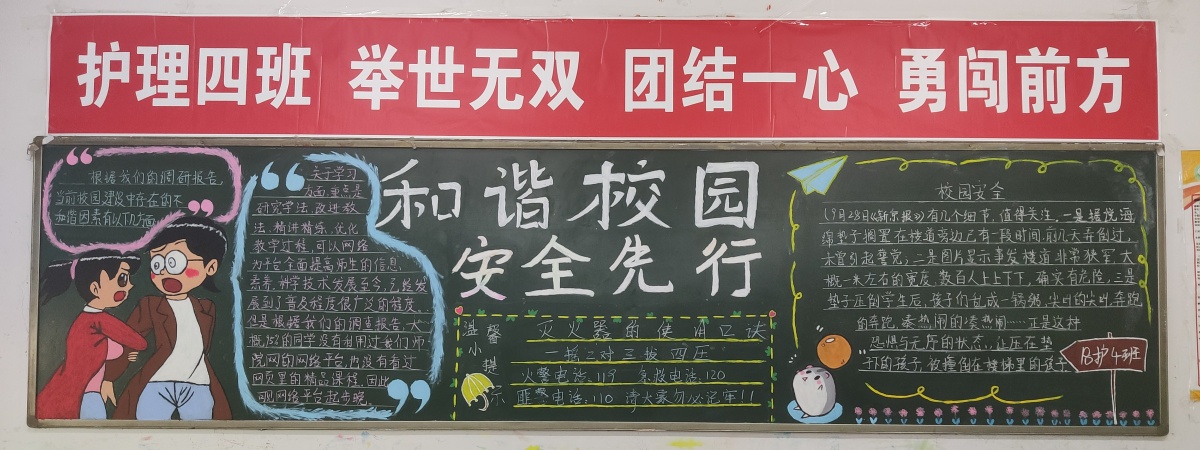 护理四班 举世无双 团结一心 勇闯前方
根据我们的调研报告,
当前校园建设中存在的不
和谐因素有以下几方面
关于学习
方面,重点是
研究学法,改进教
法,精讲精练,优化
教学过程,可以网络
为平台全面提高师生的信息
素养,科学技术发展至今,已经发
展到了普及程度很广泛的程度,
但是根据我们的调查报告,大
概75%的同学没有利用过我们师
院网的网络平台,也没有看过
网页里的精品课程,因此
可观网络平台起步晚,
和谐校园
安全先行
温馨小提示
灭火器的使用口诀
一摇二对三拔四压
火警电话:119 急救电话:120
匪警电话:110 请大家务必记牢!!
校园安全
(9月28日《新京报》)有几个细节,值得关注,一是据悉海
绵垫子搁置在楼道旁边已有一段时间,前几天弄倒过,
未曾引起警觉,二是图片显示事发楼道非常狭窄,大
概一米左右的宽度,数百人上上下下,确实有危险,三是
垫子压倒学生后,孩子们乱成一锅粥,尖叫的尖叫,奔跑
的奔跑,凑热闹的凑热闹……正是这种
恐惧与无序的状态,让压在垫
下的孩子,被撞倒在楼梯里的孩子
启护4班